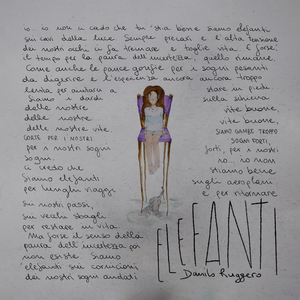 io.. io non credo che tu stia bene siamo elefanti
sui cavi della luce sempre precari e l'alta tensione
dei nostri occhi ci fa tremare e toglie vita E forse
il tempo per la paura dell'incertezza, quello rimane
Come anche le paure grafie per i sogni pesanti
da digerire e l'esperienza ancora ancora troppo
lenta per aiutarci a stare in piedi..
Siamo i dardi sulla schiena
delle nostre vite buone,
delle nostre vite buone,
delle nostre vite SIAMO GAMBE TROPPO
CORTE PER I NOSTRI SOGNI FORTI,
per i nostri sogni forti, per i nostri
sogni. io.. io non
io credo che stiamo bene
siamo elefanti sugli aeroplani
per lunghi viaggi e per ritornare
sui nostri passi,
sui vecchi sbagli
per restare in vita
Ma forse il senso della
paura dell'incertezza poi
non esiste siamo
elefanti sui cornicioni
dei nostri sogni andati
ELEFANTI
Danilo Ruggero